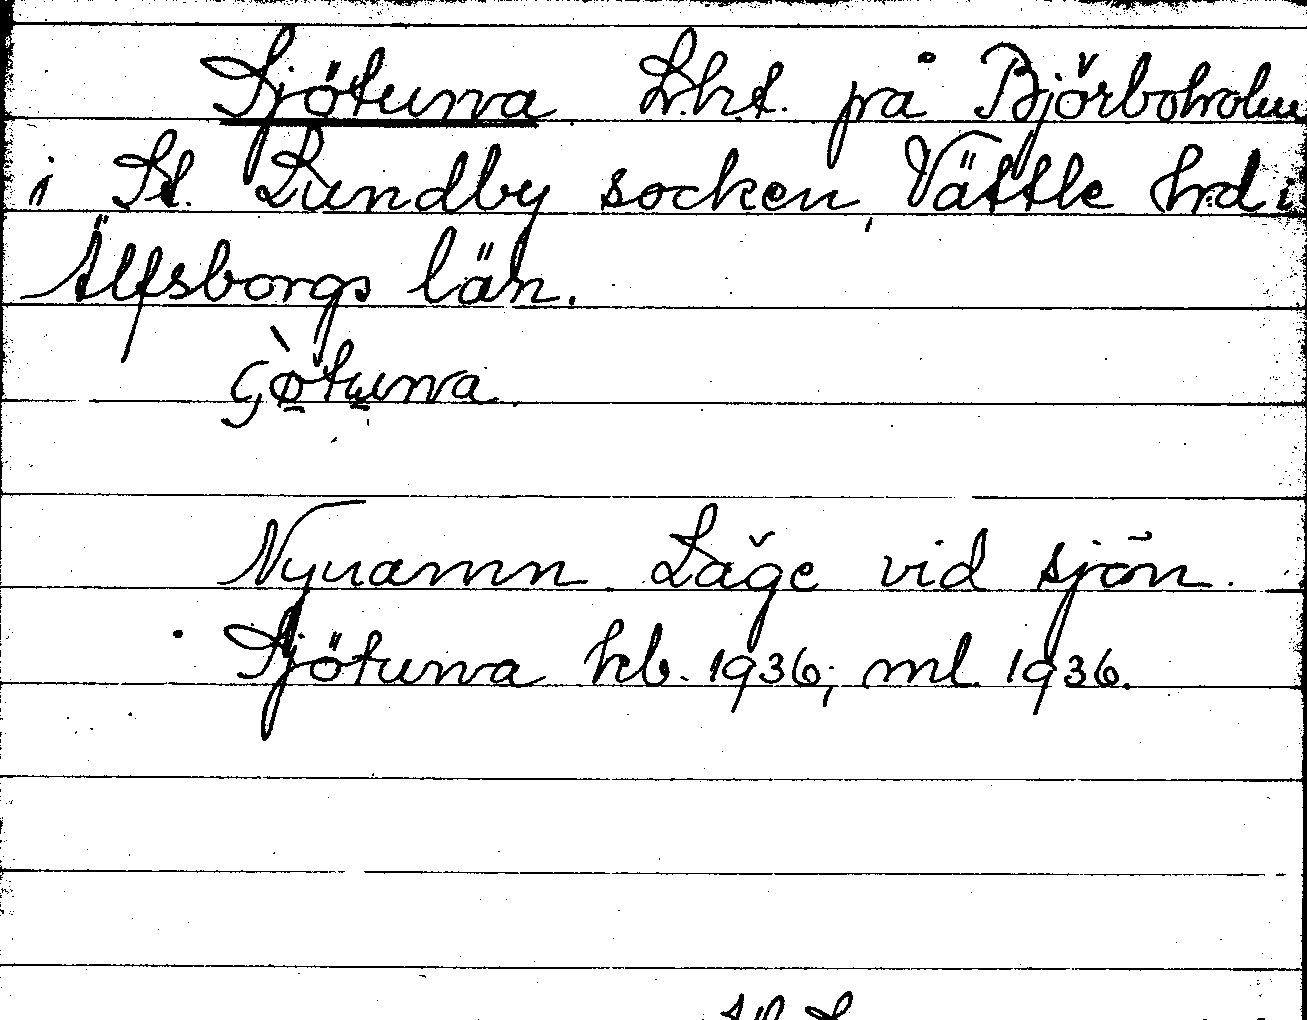 Sjötuna Lht. på Björboholm
i St. Lundby socken, Vättle hrd i
Älfsborgs län.
Nynamn. Läge vid sjön.
Sjötuna kb. 1936; ml. 1936.